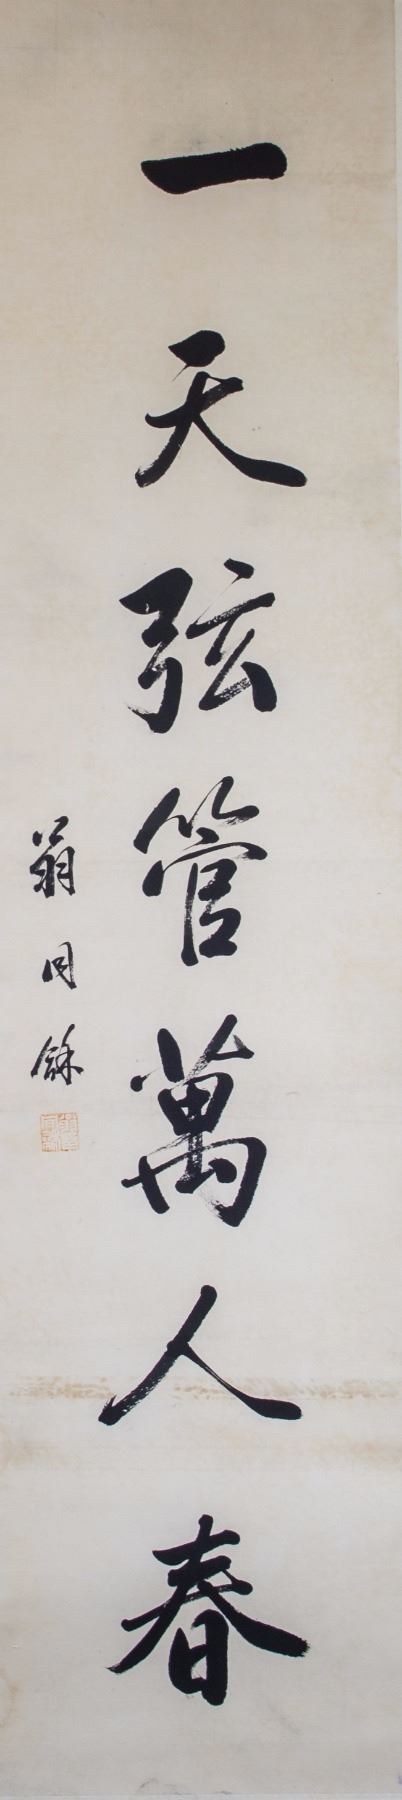 一天弦管萬人春
翁同龢